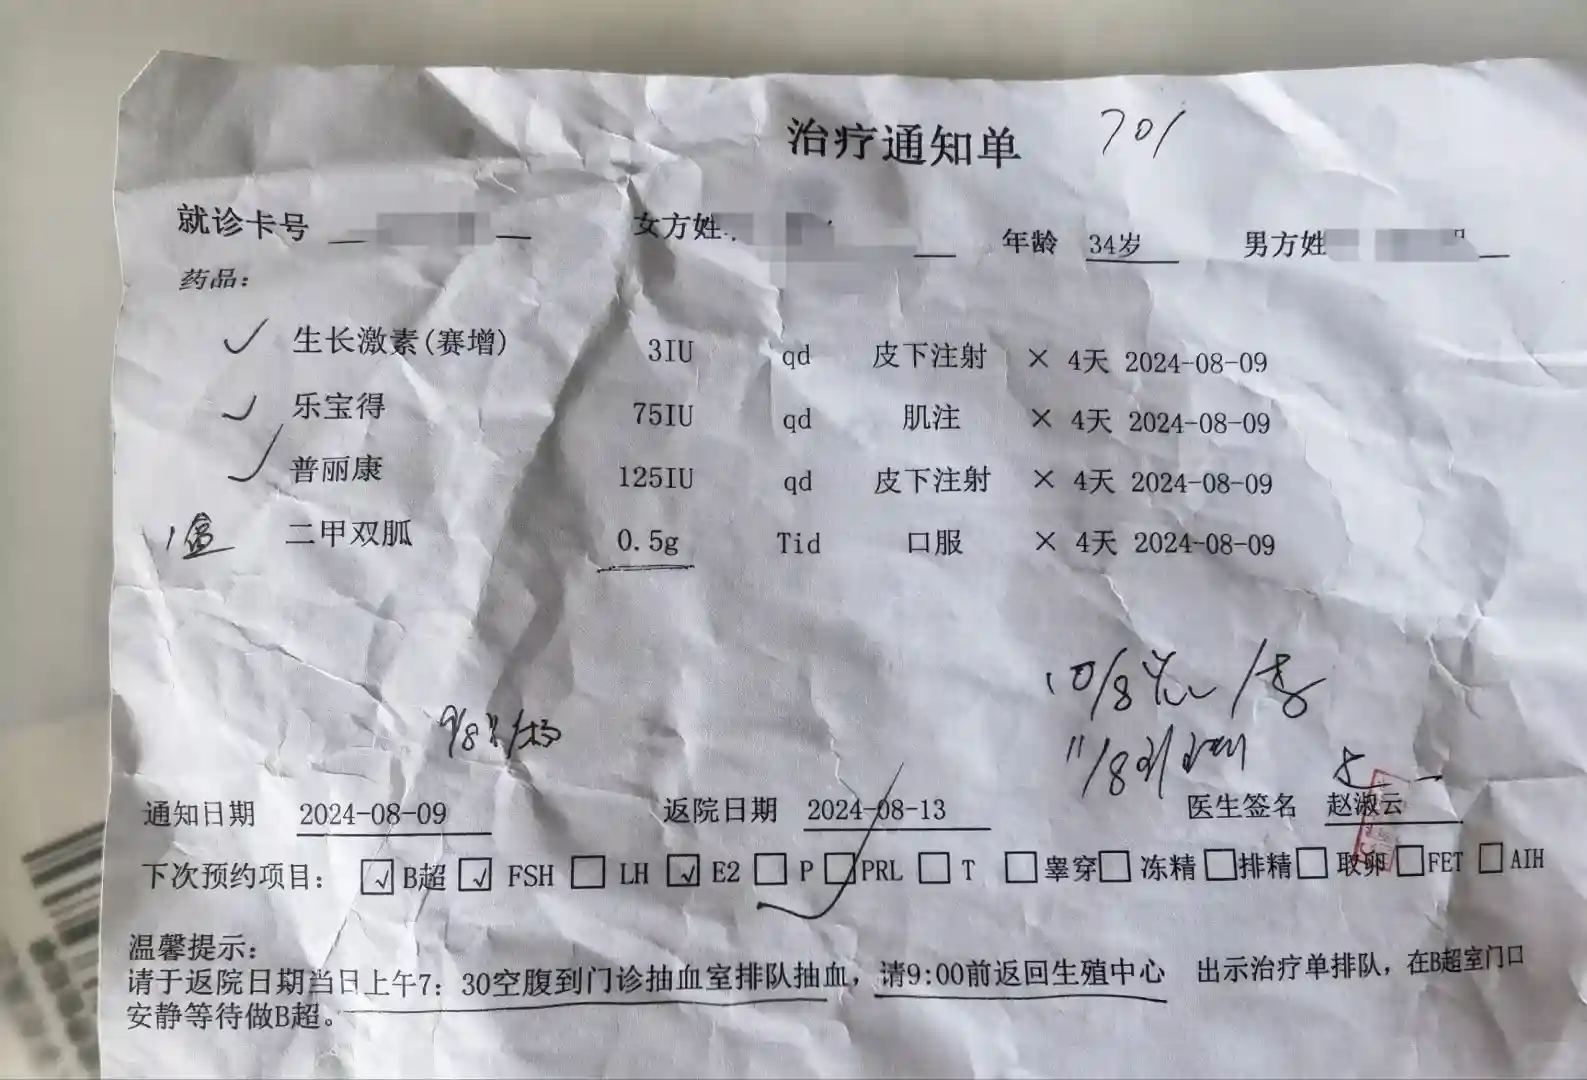 治疗通知单 701
就诊卡号 女方姓 年龄 34岁 男方姓
药品：
✓ 生长激素(赛增) 3IU qd 皮下注射 × 4天 2024-08-09
✓ 乐宝得 75IU qd 肌注 × 4天 2024-08-09
✓ 普丽康 125IU qd 皮下注射 × 4天 2024-08-09
1盒 二甲双胍 0.5g Tid 口服 × 4天 2024-08-09
10/8
9/8 /杨
11/8
通知日期 2024-08-09 返院日期 2024-08-13 医生签名 赵淑云
下次预约项目： ☑B超 ☑ FSH □ LH ☑ E2 □ P □PRL □ T □睾穿□ 冻精 □排精□ 取卵 □FET □AIH
温馨提示：
请于返院日期当日上午7：30空腹到门诊抽血室排队抽血，请9:00前返回生殖中心 出示治疗单排队，在B超室门口
安静等待做B超。